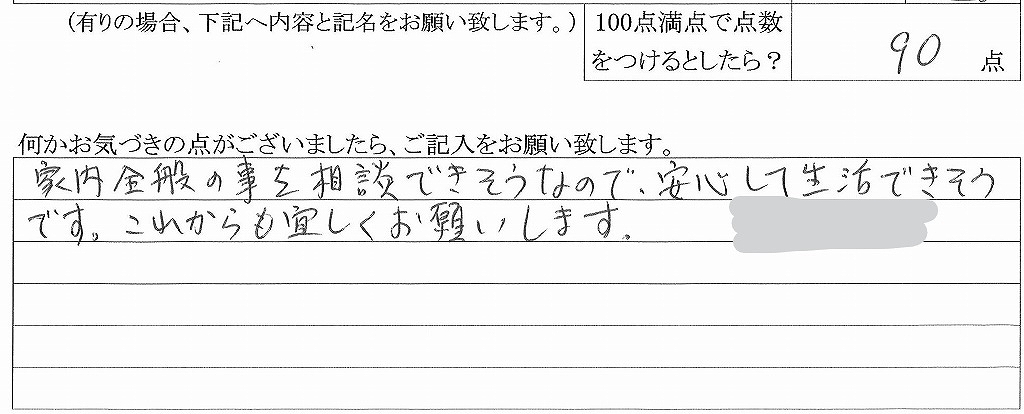 (有りの場合、下記へ内容と記名をお願い致します。)
100点満点で点数
をつけるとしたら?
90 点
何かお気づきの点がございましたら、ご記入をお願い致します。
家内全般の事を相談できそうなので、安心して生活できそう
です。これからも宜しくお願いします。